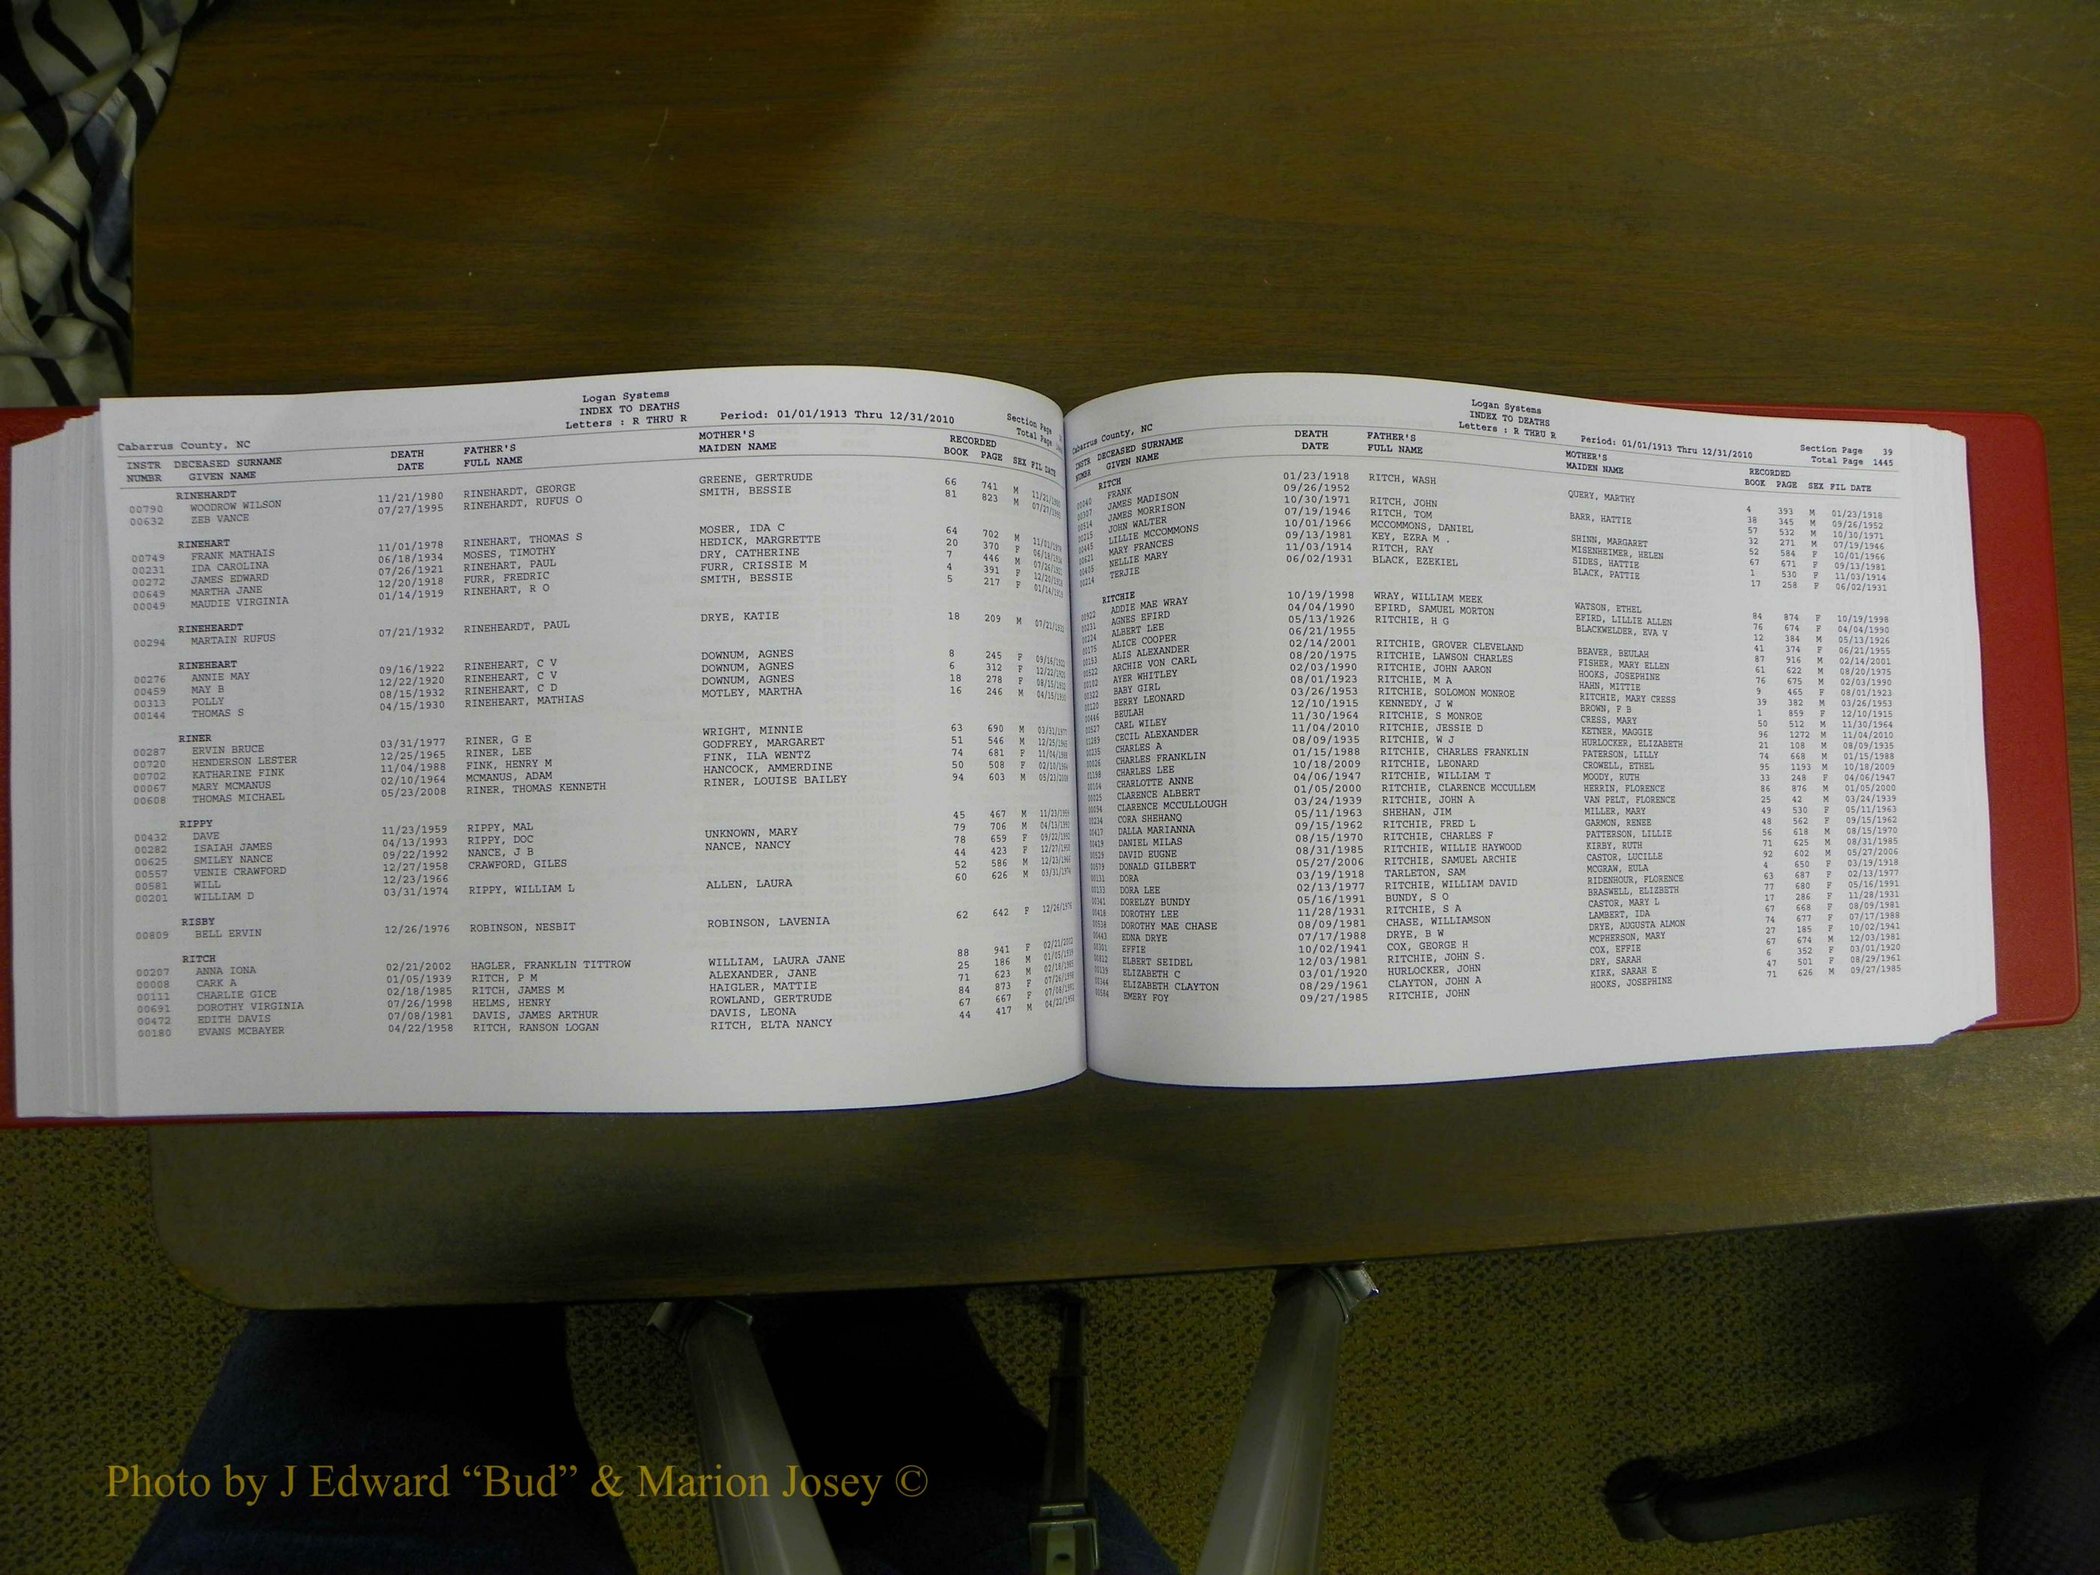 Logan Systems
INDEX TO DEATHS
Cabarrus County, NC Letters : R THRU R Period: 01/01/1913 Thru 12/31/2010 Section Page
Total Page
INSTR DECEASED SURNAME DEATH FATHER'S MOTHER'S RECORDED
NUMBR GIVEN NAME DATE FULL NAME MAIDEN NAME BOOK PAGE SEX FIL DATE
RINEHARDT
00790 WOODROW WILSON 11/21/1980 RINEHARDT, GEORGE GREENE, GERTRUDE 66 741 M 11/21/1980
00632 ZEB VANCE 07/27/1995 RINEHARDT, RUFUS O SMITH, BESSIE 81 823 M 07/27/1995
RINEHART
00749 FRANK MATHAIS 11/01/1978 RINEHART, THOMAS S MOSER, IDA C 64 702 M 11/01/1978
00231 IDA CAROLINA 06/18/1934 MOSES, TIMOTHY HEDICK, MARGRETTE 20 370 F 06/18/1934
00272 JAMES EDWARD 07/26/1921 RINEHART, PAUL DRY, CATHERINE 7 446 M 07/26/1921
00649 MARTHA JANE 12/20/1918 FURR, FREDRIC FURR, CRISSIE M 4 391 F 12/20/1918
00049 MAUDIE VIRGINIA 01/14/1919 RINEHART, R O SMITH, BESSIE 5 217 F 01/14/1919
RINEHEARDT
00294 MARTAIN RUFUS 07/21/1932 RINEHEARDT, PAUL DRYE, KATIE 18 209 M 07/21/1932
RINEHEART
00276 ANNIE MAY 09/16/1922 RINEHEART, C V DOWNUM, AGNES 8 245 F 09/16/1922
00459 MAY B 12/22/1920 RINEHEART, C V DOWNUM, AGNES 6 312 F 12/22/1920
00313 POLLY 08/15/1932 RINEHEART, C D DOWNUM, AGNES 18 278 F 08/15/1932
00144 THOMAS S 04/15/1930 RINEHEART, MATHIAS MOTLEY, MARTHA 16 246 M 04/15/1930
RINER
00287 ERVIN BRUCE 03/31/1977 RINER, G E WRIGHT, MINNIE 63 690 M 03/31/1977
00720 HENDERSON LESTER 12/25/1965 RINER, LEE GODFREY, MARGARET 51 546 M 12/25/1965
00702 KATHARINE FINK 11/04/1988 FINK, HENRY M FINK, ILA WENTZ 74 681 F 11/04/1988
00067 MARY MCMANUS 02/10/1964 MCMANUS, ADAM HANCOCK, AMMERDINE 50 508 F 02/10/1964
00608 THOMAS MICHAEL 05/23/2008 RINER, THOMAS KENNETH RINER, LOUISE BAILEY 94 603 M 05/23/2008
RIPPY
00432 DAVE 11/23/1959 RIPPY, MAL 45 467 M 11/23/1959
00282 ISAIAH JAMES 04/13/1993 RIPPY, DOC UNKNOWN, MARY 79 706 M 04/13/1993
00625 SMILEY NANCE 09/22/1992 NANCE, J B NANCE, NANCY 78 659 F 09/22/1992
00557 VENIE CRAWFORD 12/27/1958 CRAWFORD, GILES 44 423 F 12/27/1958
00581 WILL 12/23/1966 52 586 M 12/23/1966
00201 WILLIAM D 03/31/1974 RIPPY, WILLIAM L ALLEN, LAURA 60 626 M 03/31/1974
RISBY
00809 BELL ERVIN 12/26/1976 ROBINSON, NESBIT ROBINSON, LAVENIA 62 642 F 12/26/1976
RITCH
00207 ANNA IONA 02/21/2002 HAGLER, FRANKLIN TITTROW WILLIAM, LAURA JANE 88 941 F 02/21/2002
00008 CARK A 01/05/1939 RITCH, P M ALEXANDER, JANE 25 186 M 01/05/1939
00111 CHARLIE GICE 02/18/1985 RITCH, JAMES M HAIGLER, MATTIE 71 623 M 02/18/1985
00691 DOROTHY VIRGINIA 07/26/1998 HELMS, HENRY ROWLAND, GERTRUDE 84 873 F 07/26/1998
00472 EDITH DAVIS 07/08/1981 DAVIS, JAMES ARTHUR DAVIS, LEONA 67 667 F 07/08/1981
00180 EVANS MCBAYER 04/22/1958 RITCH, RANSON LOGAN RITCH, ELTA NANCY 44 417 M 04/22/1958
Logan Systems
INDEX TO DEATHS
Cabarrus County, NC Letters : R THRU R Period: 01/01/1913 Thru 12/31/2010 Section Page 39
Total Page 1445
INSTR DECEASED SURNAME DEATH FATHER'S MOTHER'S RECORDED
NUMBR GIVEN NAME DATE FULL NAME MAIDEN NAME BOOK PAGE SEX FIL DATE
RITCH
00040 FRANK 01/23/1918 RITCH, WASH QUERY, MARTHY 4 393 M 01/23/1918
00307 JAMES MADISON 09/26/1952 38 345 M 09/26/1952
00514 JAMES MORRISON 10/30/1971 RITCH, JOHN BARR, HATTIE 57 532 M 10/30/1971
00215 JOHN WALTER 07/19/1946 RITCH, TOM 32 271 M 07/19/1946
00445 LILLIE MCCOMMONS 10/01/1966 MCCOMMONS, DANIEL SHINN, MARGARET 52 584 F 10/01/1966
00621 MARY FRANCES 09/13/1981 KEY, EZRA M . MISENHEIMER, HELEN 67 671 F 09/13/1981
00405 NELLIE MARY 11/03/1914 RITCH, RAY SIDES, HATTIE 1 530 F 11/03/1914
00214 TERJIE 06/02/1931 BLACK, EZEKIEL BLACK, PATTIE 17 258 F 06/02/1931
RITCHIE
00922 ADDIE MAE WRAY 10/19/1998 WRAY, WILLIAM MEEK WATSON, ETHEL 84 874 F 10/19/1998
00231 AGNES EFIRD 04/04/1990 EFIRD, SAMUEL MORTON EFIRD, LILLIE ALLEN 76 674 F 04/04/1990
00224 ALBERT LEE 05/13/1926 RITCHIE, H G BLACKWELDER, EVA V 12 384 M 05/13/1926
00175 ALICE COOPER 06/21/1955 41 374 F 06/21/1955
00153 ALIS ALEXANDER 02/14/2001 RITCHIE, GROVER CLEVELAND BEAVER, BEULAH 87 916 M 02/14/2001
00522 ARCHIE VON CARL 08/20/1975 RITCHIE, LAWSON CHARLES FISHER, MARY ELLEN 61 622 M 08/20/1975
00102 AYER WHITLEY 02/03/1990 RITCHIE, JOHN AARON HOOKS, JOSEPHINE 76 675 M 02/03/1990
00322 BABY GIRL 08/01/1923 RITCHIE, M A HAHN, MITTIE 9 465 F 08/01/1923
00120 BERRY LEONARD 03/26/1953 RITCHIE, SOLOMON MONROE RITCHIE, MARY CRESS 39 382 M 03/26/1953
00446 BEULAH 12/10/1915 KENNEDY, J W BROWN, F B 1 859 F 12/10/1915
00527 CARL WILEY 11/30/1964 RITCHIE, S MONROE CRESS, MARY 50 512 M 11/30/1964
01289 CECIL ALEXANDER 11/04/2010 RITCHIE, JESSIE D KETNER, MAGGIE 96 1272 M 11/04/2010
00235 CHARLES A 08/09/1935 RITCHIE, W J HURLOCKER, ELIZABETH 21 108 M 08/09/1935
00026 CHARLES FRANKLIN 01/15/1988 RITCHIE, CHARLES FRANKLIN PATERSON, LILLY 74 668 M 01/15/1988
01198 CHARLES LEE 10/18/2009 RITCHIE, LEONARD CROWELL, ETHEL 95 1193 M 10/18/2009
00104 CHARLOTTE ANNE 04/06/1947 RITCHIE, WILLIAM T MOODY, RUTH 33 248 F 04/06/1947
00025 CLARENCE ALBERT 01/05/2000 RITCHIE, CLARENCE MCCULLEM HERRIN, FLORENCE 86 876 M 01/05/2000
00094 CLARENCE MCCULLOUGH 03/24/1939 RITCHIE, JOHN A VAN PELT, FLORENCE 25 42 M 03/24/1939
00234 CORA SHEHANQ 05/11/1963 SHEHAN, JIM MILLER, MARY 49 530 F 05/11/1963
00417 DALLA MARIANNA 09/15/1962 RITCHIE, FRED L GARMON, RENEE 48 562 F 09/15/1962
00419 DANIEL MILAS 08/15/1970 RITCHIE, CHARLES F PATTERSON, LILLIE 56 618 M 08/15/1970
00529 DAVID EUGNE 08/31/1985 RITCHIE, WILLIE HAYWOOD KIRBY, RUTH 71 625 M 08/31/1985
00579 DONALD GILBERT 05/27/2006 RITCHIE, SAMUEL ARCHIE CASTOR, LUCILLE 92 602 M 05/27/2006
00131 DORA 03/19/1918 TARLETON, SAM MCGRAW, EULA 4 650 F 03/19/1918
00133 DORA LEE 02/13/1977 RITCHIE, WILLIAM DAVID RIDENHOUR, FLORENCE 63 687 F 02/13/1977
00341 DORELZY BUNDY 05/16/1991 BUNDY, S O BRASWELL, ELIZBETH 77 680 F 05/16/1991
00418 DOROTHY LEE 11/28/1931 RITCHIE, S A CASTOR, MARY L 17 286 F 11/28/1931
00538 DOROTHY MAE CHASE 08/09/1981 CHASE, WILLIAMSON LAMBERT, IDA 67 668 F 08/09/1981
00443 EDNA DRYE 07/17/1988 DRYE, B W DRYE, AUGUSTA ALMON 74 677 F 07/17/1988
00301 EFFIE 10/02/1941 COX, GEORGE H MCPHERSON, MARY 27 185 F 10/02/1941
00812 ELBERT SEIDEL 12/03/1981 RITCHIE, JOHN S. COX, EFFIE 67 674 M 12/03/1981
00139 ELIZABETH C 03/01/1920 HURLOCKER, JOHN DRY, SARAH 6 352 F 03/01/1920
00344 ELIZABETH CLAYTON 08/29/1961 CLAYTON, JOHN A KIRK, SARAH E 47 501 F 08/29/1961
00584 EMERY FOY 09/27/1985 RITCHIE, JOHN HOOKS, JOSEPHINE 71 626 M 09/27/1985
Photo by J Edward “Bud” & Marion Josey ©